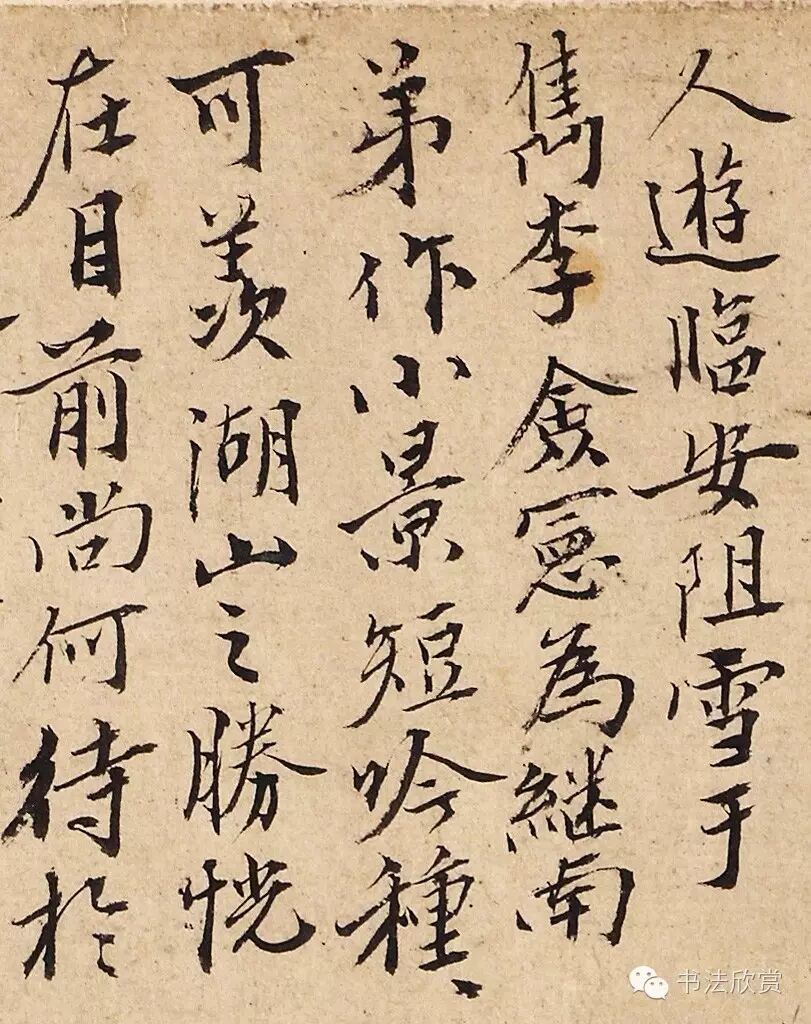 人遊臨安阻雪于
雋李僉憲為繼南
弟作小景短吟種〻
可羨湖山之勝恍
在目前尚何待於
书法欣赏